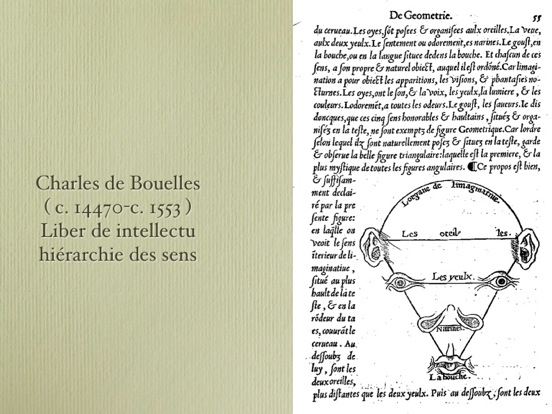 Charles de Bouelles
( c. 14470-c. 1553 )
Liber de intellectu
hiérarchie des sens
De Geometrie. 55
du cerueau. Les oyes, sõt posees & organisees aulx oreilles. La veue,
aulx deux yeulx. Le sentement ou odorement, es narines. Le goust, en
la bouche, ou en la langue situee dedens la bouche. Et chascun de ces
sens, a son propre & naturel obiect, auquel il est ordõné. Car limagi-
nation a pour obiect les apparitions, les visions, & phantasies no-
cturnes. Les oyes, ont le son, & la voix, les yeulx, la lumiere, & les
couleurs. Lodoremẽt, a toutes les odeurs. Le goust, les saueurs. Ie dis
doncques, que ces cinq sens honorables & haultains, situés & orga-
nisés en la teste, ne sont exemptz de figure Geometrique. Car lordre
selon lequel ilz sont naturellement posez & situez en la teste, garde
& obserue la belle figure triangulaire: laquelle est la premiere, & la
plus mystique de toutes les figures angulaires. ¶Ce propos est bien,
& suffisam-
ment declai-
ré par la pre
sente figure:
en laq̃lle on
voit le sens
iterieur de li-
maginatiue,
situé au plus
hault de la te
ste, & en la
rõdeur du ta
es, couurãt le
cerueau. Au
dessoubz de
luy, sont les
deux oreilles,
Lorgane de limaginatiue.
Les oreilles.
Les yeulx.
Narines.
La bouche.
plus distantes que les deux yeulx. Puis au dessoubz, sont les deux